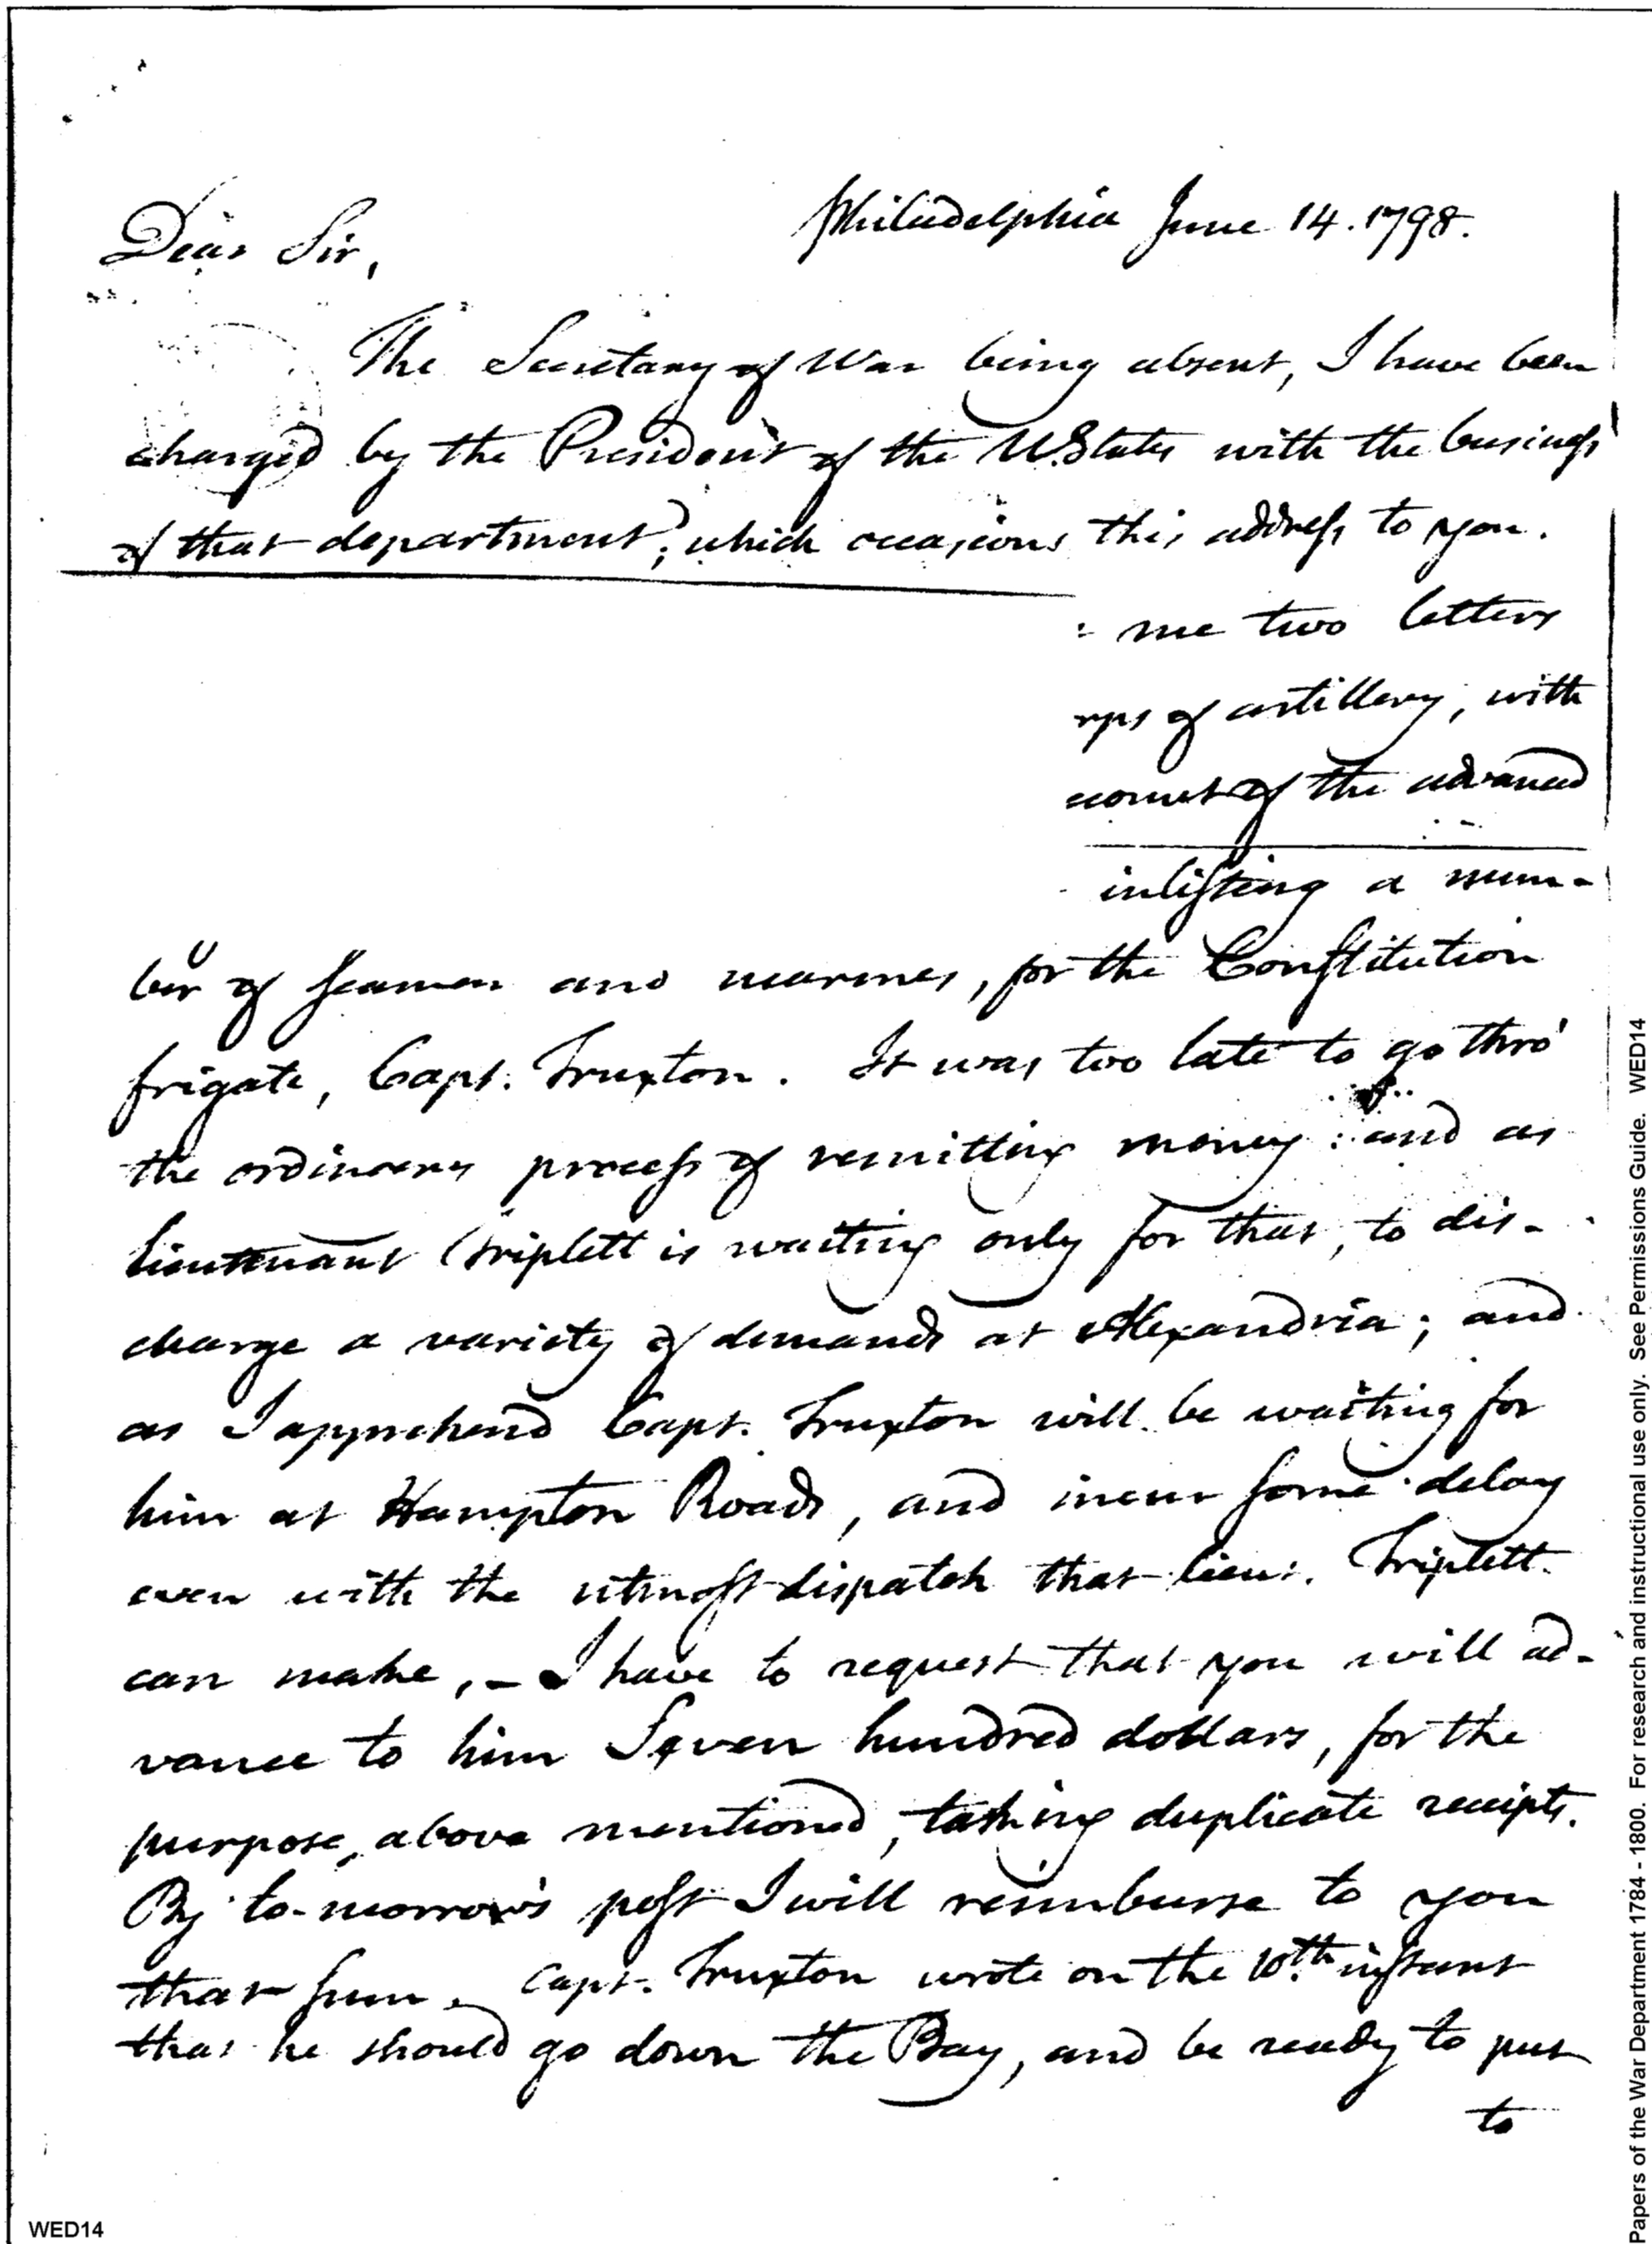 Philadelphia June 14. 1798.
Dear Sir,
The Secretary of War being absent, I have been
charged by the President of the U. States with the business
of that department; which occasions this address to you.
me two letters
rps of artillery, with
count of the advanced
inlisting a num-
ber of seamen and marines, for the Constitution
frigate, Capt. Truxton. It was too late to go thro'
the ordinary process of remitting money: and as
lieutenant Triplett is waiting only for that, to dis-
charge a variety of demands at Alexandria; and
as I apprehend Capt. Truxton will be waiting for
him at Hampton Roads, and incur some delay
even with the utmost dispatch that lieut. Triplett
can make, – I have to request that you will ad-
vance to him Seven hundred dollars, for the
purpose, above mentioned, taking duplicate receipts.
By to-morrow's post I will reimburse to you
that sum. Capt. Truxton wrote on the 10th. instant
that he should go down the Bay, and be ready to put
to
WED14
Papers of the War Department 1784 - 1800. For research and instructional use only. See Permissions Guide. WED14